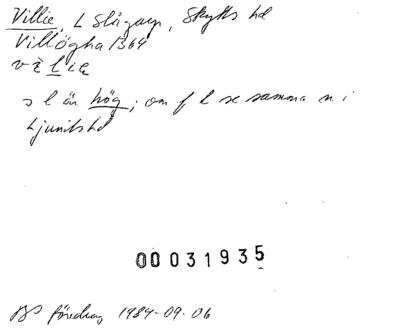 Villie, L Slågarp, Skytts hd
Villögha 1364
s l än hög; om f l se samma n i
Ljunits hd
00031935
föredrag 1984-09-06